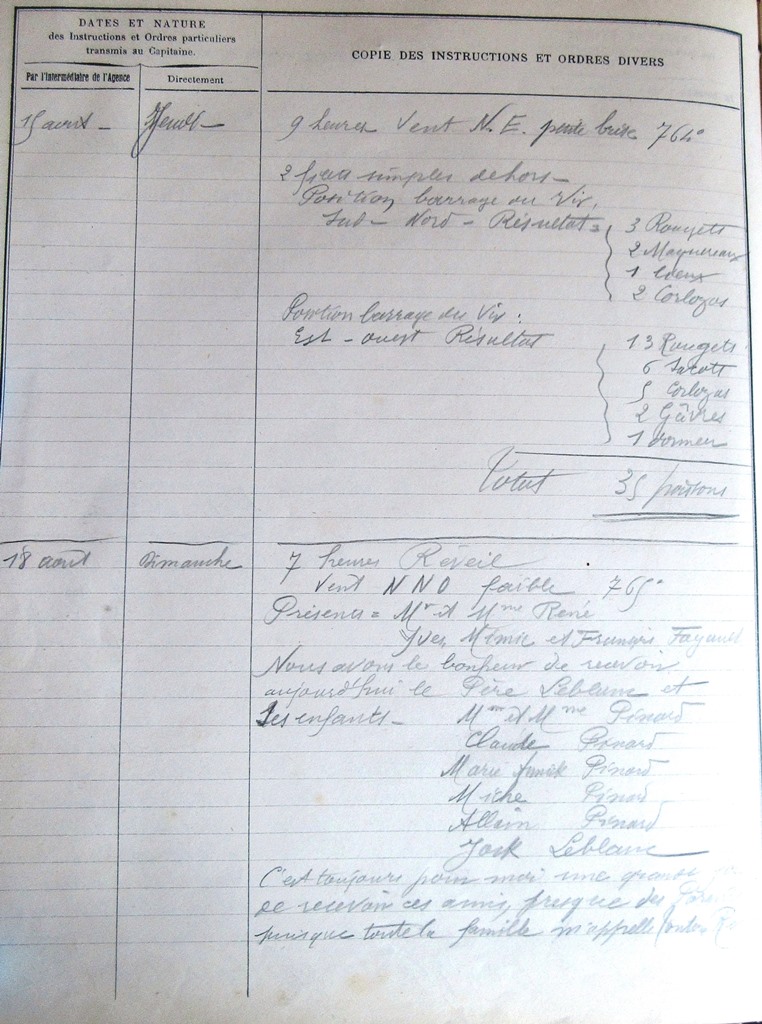 DATES ET NATURE
des Instructions et Ordres particuliers
transmis au Capitaine.
COPIE DES INSTRUCTIONS ET ORDRES DIVERS
Par l'Intermédiaire de l'Agence
Directement
15 août - Jeudi - 9 heures Vent N.E. petite brise 764°
2 simples dehors -
Position barrage du Vir,
Sud - Nord - Résultat = 3 Rougets
2 Maquereaux
1
2 Corlazos
Position barrage du Vir :
Est - ouest Résultat
13 Rougets
6
5 Corlazos
2 Gâvres
1 dormeur
Total 35 poissons
18 août Dimanche 7 heures Réveil
Vent NNO faible 765°
Présents = Mr et Mme René
Yves, Mimie et François
Nous avons le bonheur de recevoir
aujourd'hui le Père Leblanc et
Ses enfants - Mr et Mme Pinard
Claude Pinard
Marie Pinard
Miche Pinard
Allain Pinard
Leblanc
C'est toujours pour moi une grande
de recevoir ces amis, presque des
puisque toute la famille m'appelle tonton